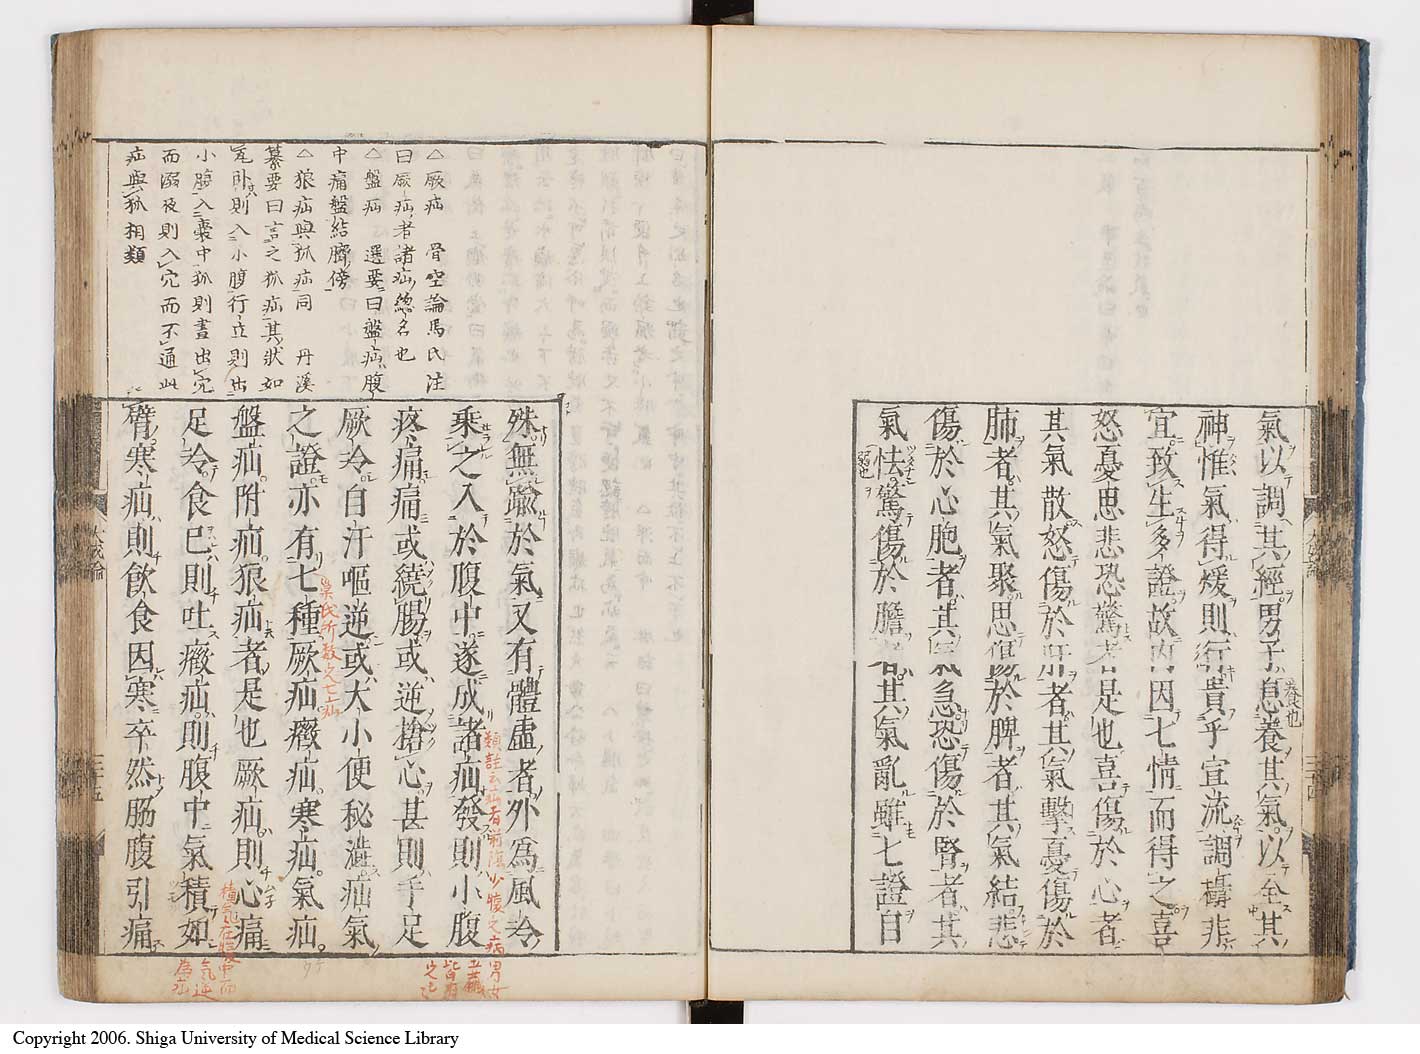 氣以調其經男子息養其氣以全其
神惟氣得煖則行貴乎宣流調檮非
宜致生多證故内因七情而得之喜
怒憂思悲恐驚者是也喜傷於心者
其氣散怒傷於肝者其氣擊憂傷於
肺者其氣聚思傷於脾者其氣結悲
傷於心胞者其氣急恐傷於腎者其
氣怯驚傷於膽者其氣亂雖七證自
大成論
三十四
殊無踰於氣又有體虛者外為風冷
乘之入於腹中遂成諸疝發則小腹
疼痛痛或繞腸或逆搶心甚則手足
厥冷自汗嘔逆或大小便秘澁疝氣
之證亦有七種厥疝癥疝寒疝氣疝
盤疝附疝狼疝者是也厥疝則心痛
足冷食已則吐癥疝則腹中氣積如
臂寒疝則飲食因寒卒然腸腹引痛
大成論
三十五
△厥疝 骨空論馬氏注
曰厥疝者諸疝總名也
△盤疝 選要曰盤疝腹
中痛盤結臍傍
△狼疝與狐疝同 丹溪
纂要曰言之狐疝其狀如
瓦卧則入小腹行立則出
小腹入囊中狐則晝出穴
而溺夜則入穴而不通此
疝與狐相類
吳氏所敷之七疝
類註云疝者前陰少腹之病男女
五臟
皆有
之也
積氣在腹中而
氣逆
為疝
Copyright 2006. Shiga University of Medical Science Library